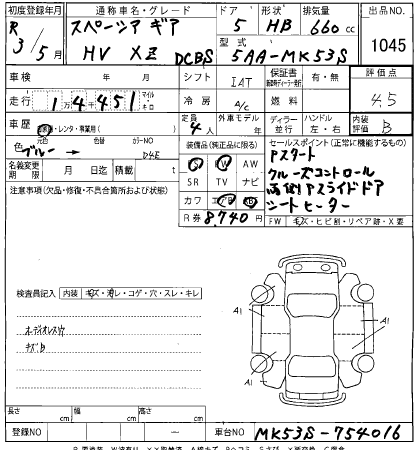 初度登録年月 通称車名・グレード ドア 形状 排気量 出品NO
R 3/5月 スペーシア ギア 5 HB 660cc 1045
HV XZ DCBS 型式 5AA-MK53S
車検 年 月 シフト IAT 保証書 有・無 評価点
走行 1万4千451 マイル キロ 冷房 A/C 燃料 4.5
車歴 自家用・レンタ・(業用) 定員 4人 外車モデル 年 ディーラー 並行 ハンドル 左・右 内装評価 B
色 元色 ブルー → 色替 カラーNO D4E 装備品(純正品に限る) セールスポイント(正常に機能するもの)
名義変更期限 月 日迄 積載 t SR TV ナビ
AW
注意事項(欠品・修復・不具合箇所および状態) カワ エアB
R券 8,740円
Pスタート
クルーズコントロール
両側Pスライドドア
シートヒーター
FW キズ・ヒビ割・リペア跡・X要
検査員記入 内装 キズ・汚レ・コゲ・穴・スレ・キレ
オーディオレス
キズB
A1
A1
A1
長さ cm 幅 cm 高さ cm
登録NO ー 車台NO MK53S-754016